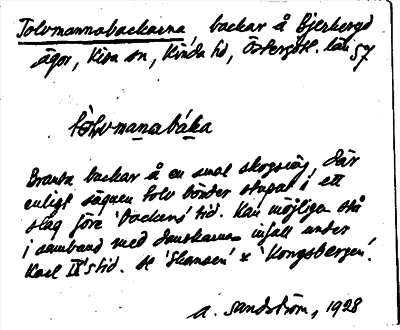 Tolvmannabackarna, backar å Bjerkeryd
ägor, Kisa sn, Kinda hd, Östergötl. län 57
tòlvmanabáka
Branta backar å en smal skogsväg, där
enligt sägnen tolv bönder stupat i ett
slag före 'Dackens' tid. Kan möjligen stå
i samband med danskarnas infall under
Karl IX's tid. se 'Skansen' x 'Kongsbergen'.
A. Sandström, 1928